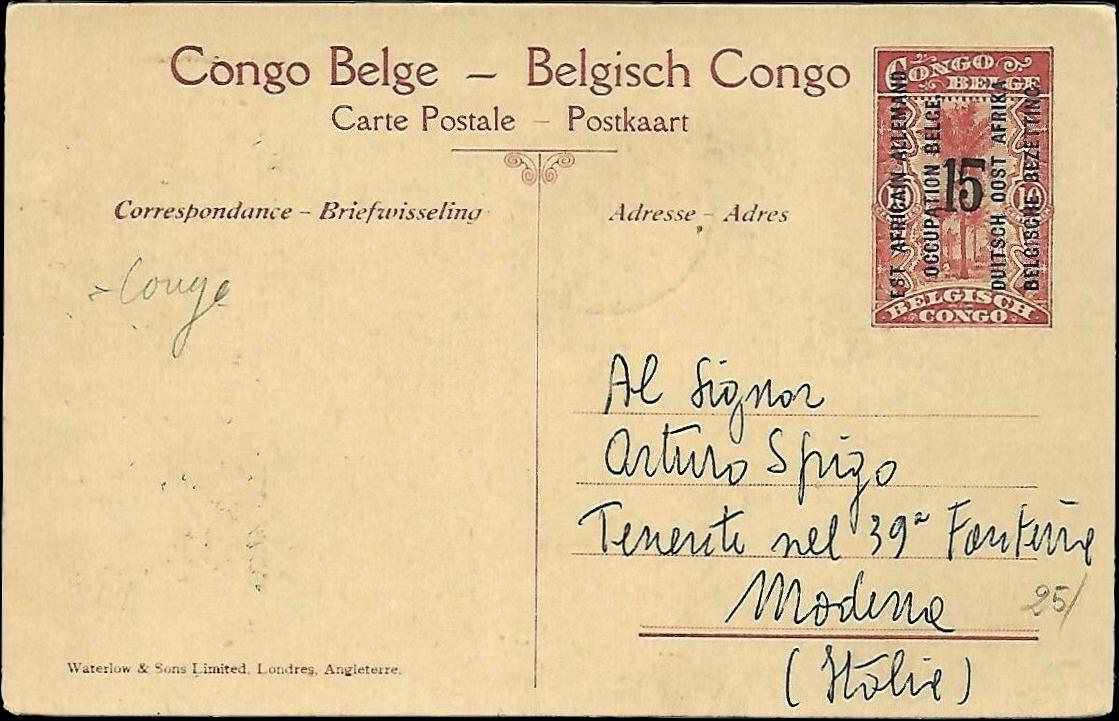 Congo Belge – Belgisch Congo
Carte Postale – Postkaart
Correspondance – Briefwisseling
Adresse – Adres
CONGO
BELGE
EST AFRICAIN ALLEMAND
OCCUPATION BELGE
15
DUITSCH OOST AFRIKA
BELGISCHE BEZETTING
10
10
BELGISCH
CONGO
Congo
Al Signor
Arturo Spigo
Tenente nel 39ª Fanteria
Modena
25/
(Italia)
Waterlow & Sons Limited, Londres, Angleterre.